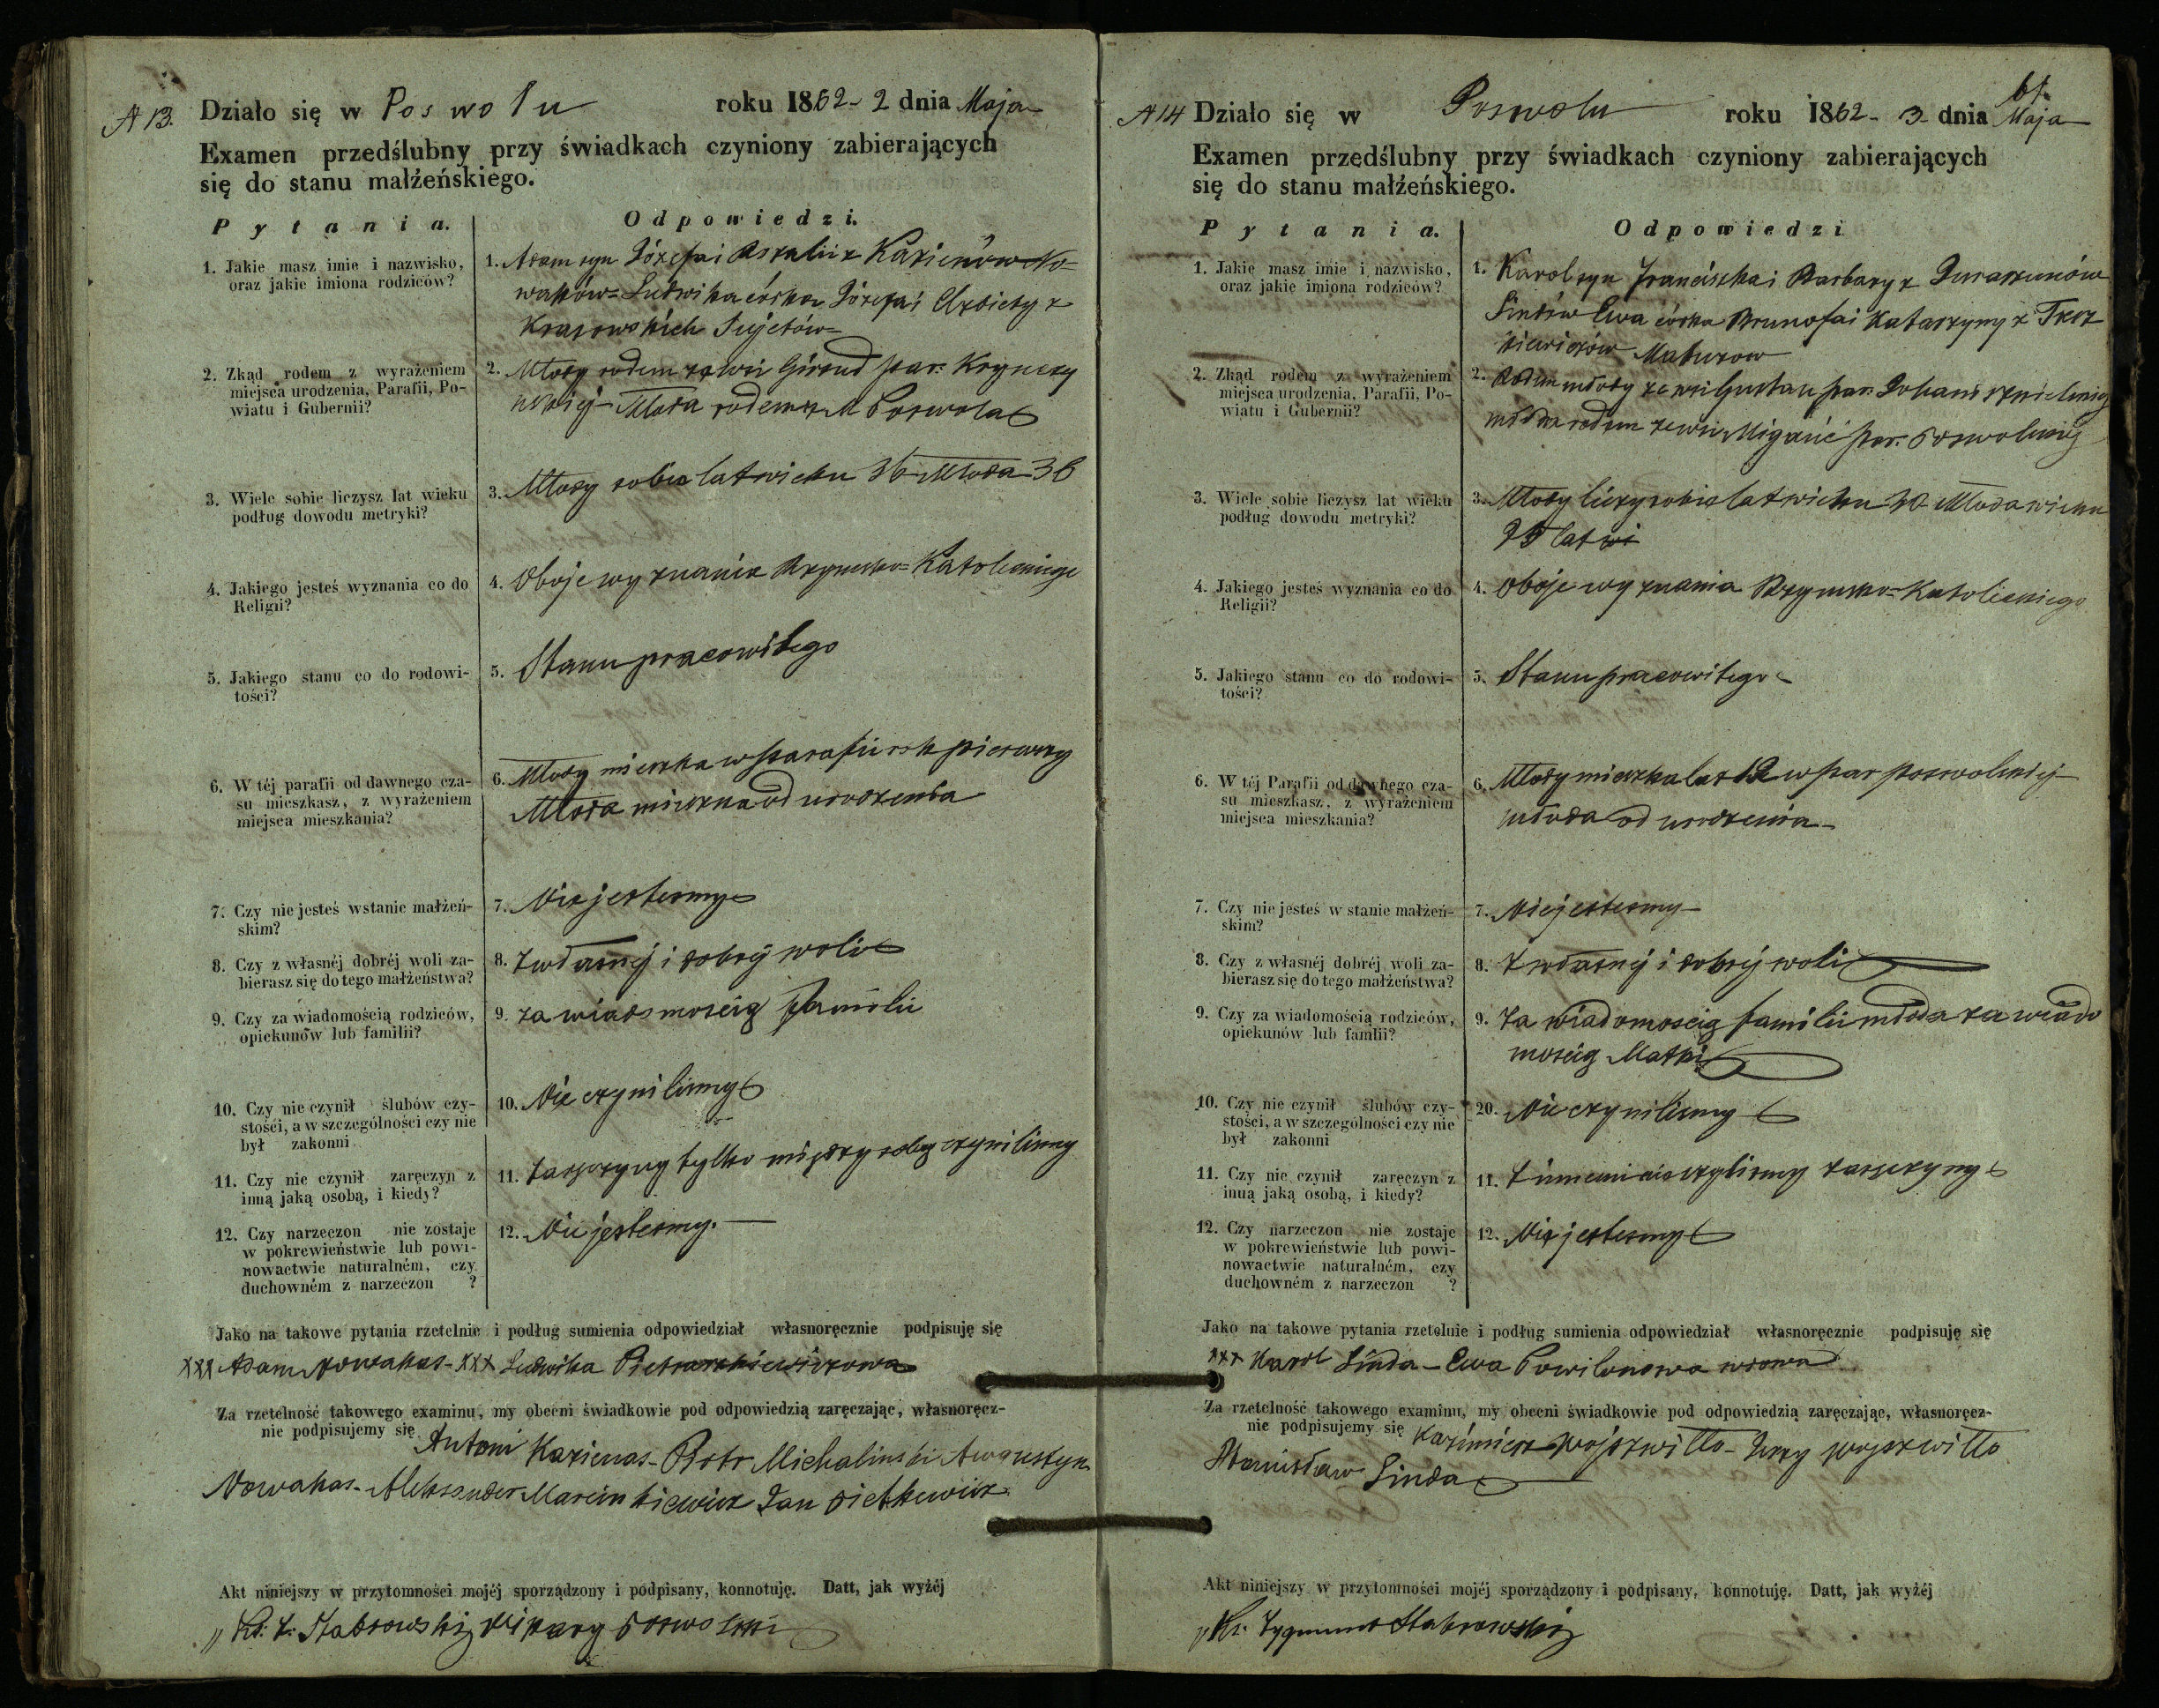 A 13. Działo się w Poswolu roku 1862 - 2 dnia Maja
Examen przedślubny przy świadkach czyniony zabierających
się do stanu małżeńskiego.
Pytania. Odpowiedzi.
1. Jakie masz imie i nazwisko,
oraz jakie imiona rodziców?
1. Adam syn Józefa i Rozalii z Kazienów No=
waków= Ludwika córka Józefa i Elżbiety z
Krasowskich
2. Zkąd rodem z wyrażeniem
miejsca urodzenia, Parafii, Po-
wiatu i Gubernii?
2. Młody rodem ze wsi par.
Młoda rodem z M Poswola
3. Wiele sobie liczysz lat wieku
podług dowodu metryki?
3. Młody sobie lat wieku 36 Młoda 36
4. Jakiego jesteś wyznania co do
Religii?
4. Oboje wyznania Rzymsko=Katolickiego
5. Jakiego stanu co do rodowi-
tości?
5. Stanu pracowitego
6. W téj parafii od dawnego cza-
su mieszkasz, z wyrażeniem
miejsca mieszkania?
6. Młody mieszka w parafii rok pierwszy
Młoda mieszka od urodzenia
7. Czy nie jesteś wstanie małżeń-
skim?
7. Nie jestesmy
8. Czy z własnéj dobréj woli za-
bierasz się do tego małżeństwa?
8. Z własnej i dobrej woli
9. Czy za wiadomością rodziców,
opiekunów lub familii?
9. za wiadomoscią familii
10. Czy nie czynił ślubów czy-
stości, a w szczególności czy nie
był zakonni
10. Nie czynilismy
11. Czy nie czynił zaręczyn z
inną jaką osobą, i kiedy?
11. Zaręczyny tylko między sobą czynilismy
12. Czy narzeczon nie zostaje
w pokrewieństwie lub powi-
nowactwie naturalném, czy
duchowném z narzeczon ?
12. Nie jestesmy.
Jako na takowe pytania rzetelnie i podług sumienia odpowiedział własnoręcznie podpisuję się
xxx Adam Nowakas - xxx Ludwika Pietraszkiewiczowa
Za rzetelność takowego examinu, my obecni świadkowie pod odpowiedzią zaręczając, własnoręcz-
nie podpisujemy się Antoni Kazienas - Piotr Michalinski Awgustyn
Nowakas - Aleksander Marcinkiewicz Jan Pietkewicz
Akt niniejszy w przytomności mojéj sporządzony i podpisany, konnotuję. Datt, jak wyżéj
„ Ks. Z. Stabrowski Wikary Poswolski
61.
A 14 Działo się w Poswolu roku 1862 - 3 dnia Maja
Examen przedślubny przy świadkach czyniony zabierających
się do stanu małżeńskiego.
Pytania. Odpowiedzi
1. Jakie masz imie i nazwisko,
oraz jakie imiona rodziców?
1. Karol syn Franciszka i Barbary z
Lindów Ewa córka Brunona i Katarzyny z
2. Zkąd rodem z wyrażeniem
miejsca urodzenia, Parafii, Po-
wiatu i Gubernii?
2. Rodem młody ze wsi par.
młoda rodem ze wsi Migańć par. Poswolskiej
3. Wiele sobie liczysz lat wieku
podług dowodu metryki?
3. Młody liczy sobie lat wieku 30 Młoda wieku
25 lat
4. Jakiego jesteś wyznania co do
Religii?
4. Oboje wyznania Rzymsko=Katolickiego
5. Jakiego stanu co do rodowi-
tości?
5. Stanu pracowitego
6. W téj Parafii od dawnego cza-
su mieszkasz, z wyrażeniem
miejsca mieszkania?
6. Młody mieszka lat 12 w par poswolskiej
młoda od urodzenia
7. Czy nie jesteś w stanie małżeń-
skim?
7. Nie jestesmy
8. Czy z własnéj dobréj woli za-
bierasz się do tego małżeństwa?
8. Z własnej i dobrej woli
9. Czy za wiadomością rodziców,
opiekunów lub familii?
9. Za wiadomoscią familii młoda za wiado
moscią Matki
10. Czy nie czynił ślubów czy-
stości, a w szczególności czy nie
był zakonni
20. Nie czynilismy
11. Czy nie czynił zaręczyn z
inną jaką osobą, i kiedy?
11. Z innemi nie zaręczyny
12. Czy narzeczon nie zostaje
w pokrewieństwie lub powi-
nowactwie naturalném, czy
duchowném z narzeczon ?
12. Nie jestesmy
Jako na takowe pytania rzetelnie i podług sumienia odpowiedział własnoręcznie podpisuję się
xxx Karol Linda - Ewa Powilonowa wdowa
Za rzetelność takowego examinu, my obecni świadkowie pod odpowiedzią zaręczając, własnoręcz-
nie podpisujemy się Kazimierz Wojszwiłło - Jerzy Wojszwiłło
Stanisław Linda
Akt niniejszy w przytomności mojéj sporządzony i podpisany, konnotuję. Datt, jak wyżéj
„ Ks. Zygmunt Stabrowski